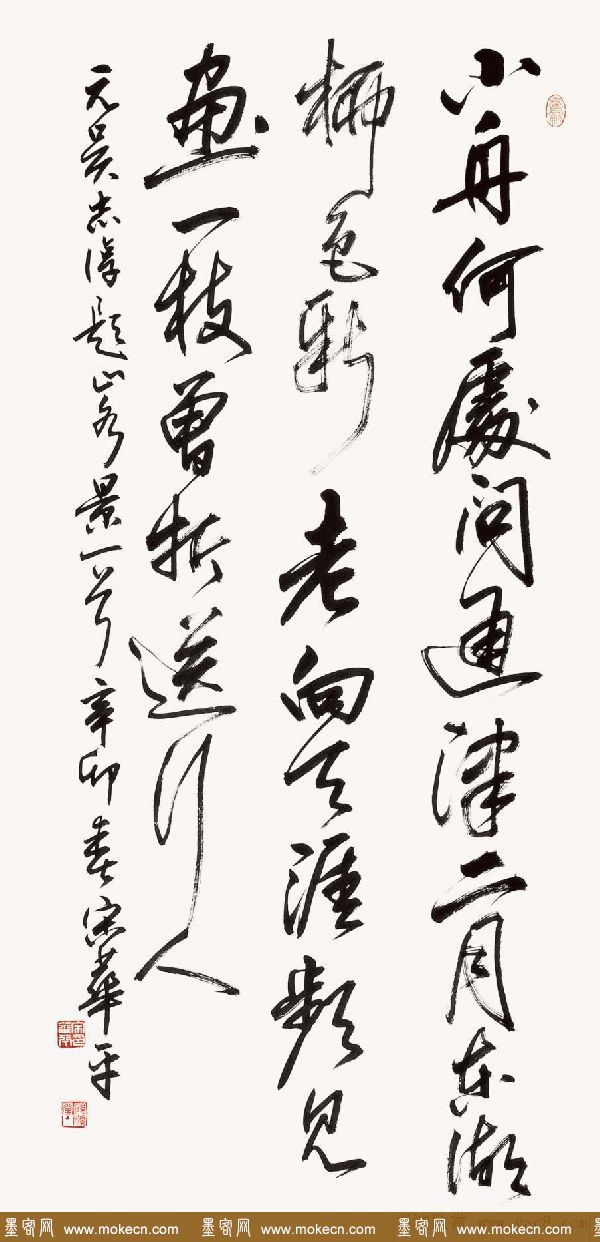 小舟何處问通津二月東湖
柳色新老向天涯頻見
畫一枝曾折送行人
元吴志淳題山水景一首辛卯春宋華平
墨客网 www.mokecn.com 墨客网 www.mokecn.com 墨客网 www.mokecn.com